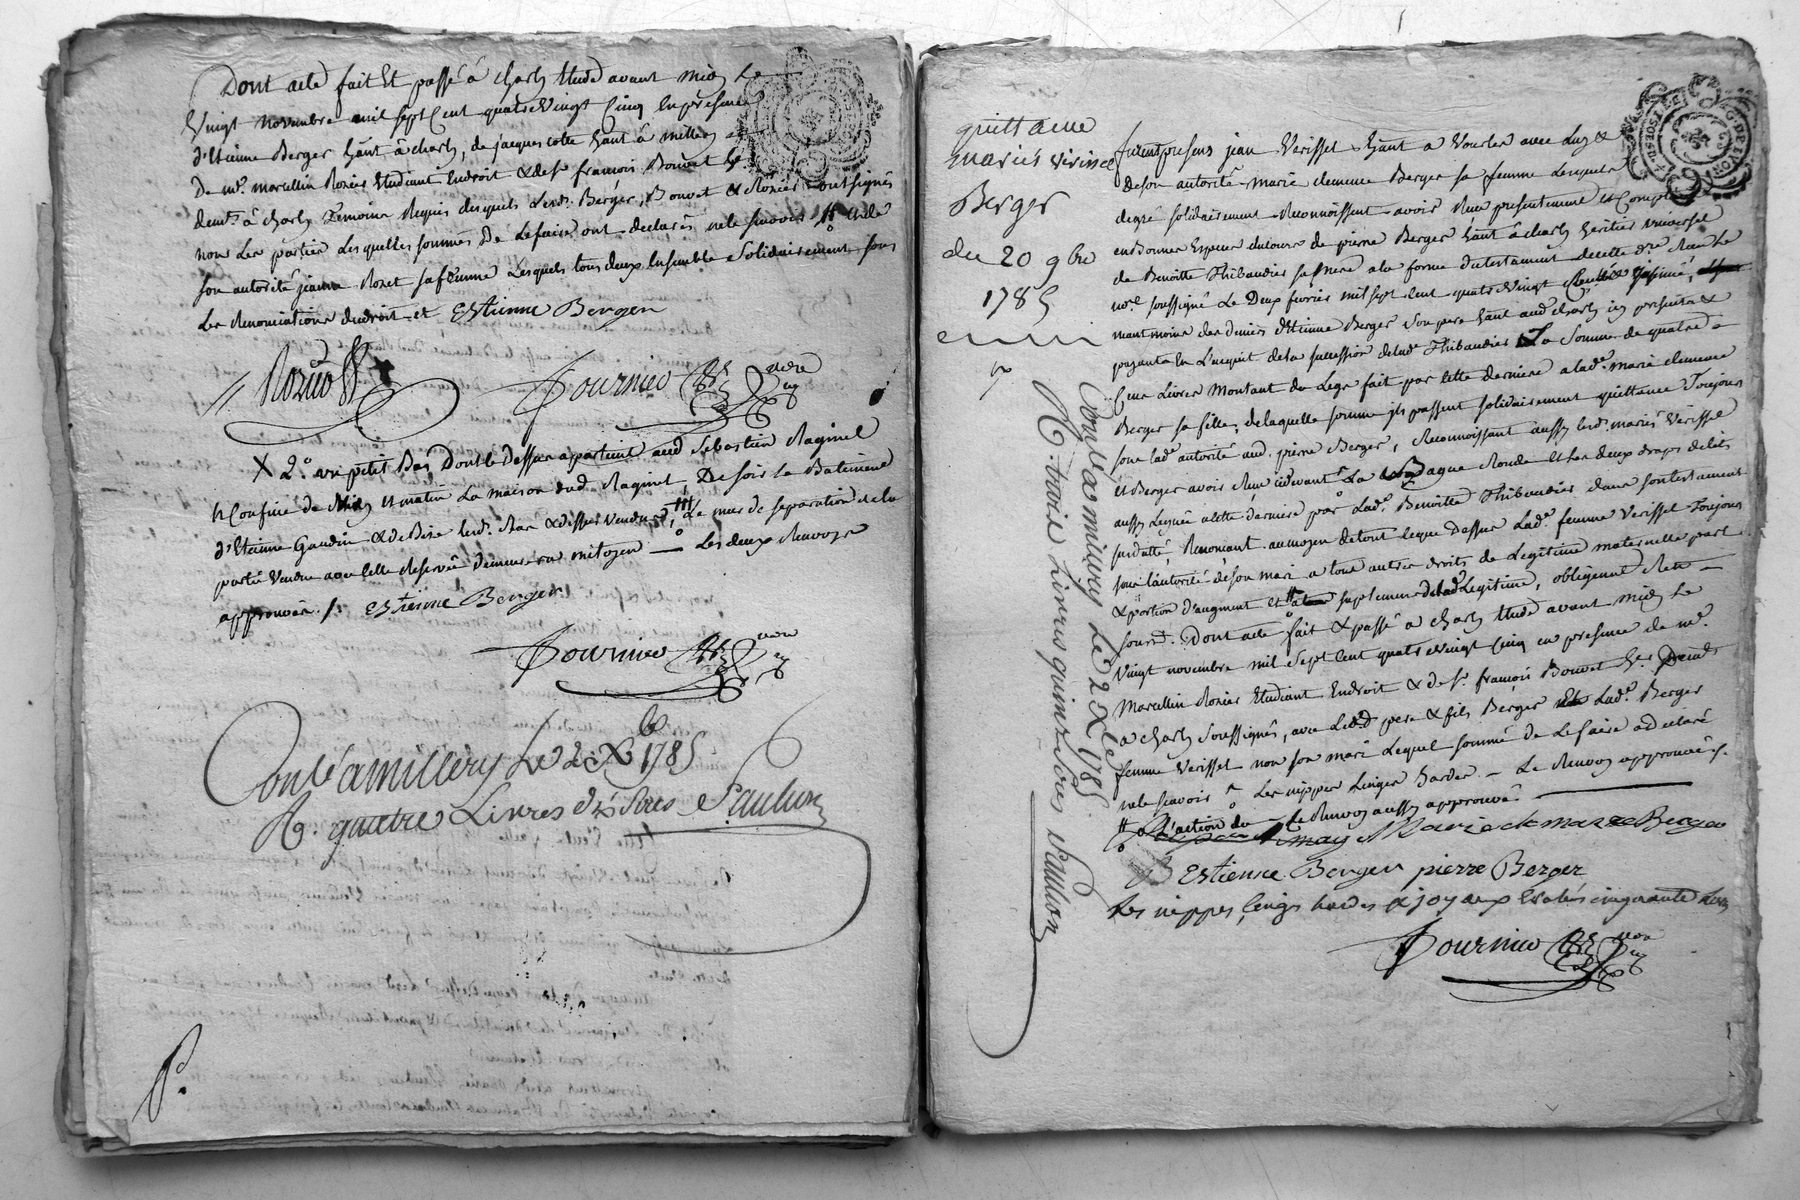 Dont acte fait Et passé à charly Etude avant midy Le
Vingt novembre mil sept Cent quatre vingt Cinq En presence
d'Etienne Berger hant à charly, de jacques cotte hant à millery et
De mr. marcellin Rozier Etudiant Endroit & de sr. françois Bouvet Br
demts. à charly temoins Requis desquels Lesds. Berger, Bouvet & Rozier ont signés
non Les parties Lesquelles sommés De Le faire ont declarés ne le scavoir #
son autorité jeanne Rozet sa femme Lesquels tous deux Ensemble solidairement sous
Les Renonciations de droit et Estienne Berger
Rozier Fournier
X 2.° un petit Bas Dont le Dessus apartient aud Sebastien Raginel
Et Confiné de midy et matin La maison dud Raginel De soir Le Batiment
d'Etienne Gaudin & de Bize Lesd. Bas & dessus vendus, Le mur de separation de la
partie Vendue avec celle Reservée demeurera mitoyen — Les deux Renvoys
approuvés ./. Estienne Berger
Fournier
Conlé a millery Le 2 Xb 1785
R. quatre Livres dix sols Saulnon
quittance
mariés verisset
Berger
du 20 9bre
1785
furent presens jean Verisset hant a Vourles avec Luy &
De son autorité marie clemence Berger sa femme Lesquels
degré solidairement Reconnoissent avoir Reçu presentement Et Comptant
en Bonnes Especes du cours de pierre Berger hant à charly heritier universel
de Benoitte Thibaudier sa mere a la forme du testament de celle dre. Reçu Le
nore. soussigné Le Deux fevrier mil sept cent quatre vingt
moyennant des deniers d'Etienne Berger son pere hant aud charly icy present &
payant En L'acquit de la succession de lade Thibaudier La Somme de quatre
Cens Livres Montant du Legs fait par cette derniere a lade. marie clemence
Berger sa fille, de laquelle somme ils passent solidairement quittance Toujours
sous lade autorité aud. pierre Berger, Reconnoissant aussy lesds. mariés Verisset
Et Berger avoir Reçu cy devant La Bague Ronde et Les deux draps de lit
aussy Legués a cette derniere par Lade. Benoitte Thibaudier dans son testament
susdatté, Renonçant au moyen de tout ce que dessus Lade. femme Verisset Toujours
sous l'autorité de son mari a tous autres droits de Legitime maternelle part
& portion d'augment et suplement de lade Legitime, obligeant Ren —
soums. Dont acte fait & passé a charly Etude avant midy Le
Vingt novembre mil sept cent quatre vingt Cinq en presence de mr.
Marcellin Rozier Etudiant Endroit & de sr. françois Bouvet Br Demts
a charly soussignés, avec Lesd pere & fils Berger Lade. Berger
femme Verisset non son mari Lequel sommé de Le faire a declaré
ne le scavoir Les nippes Linges hardes — Le Renvoy approuvé
L'action du — Le Renvoy aussy approuvé
Marie clemance Berger
Estienne Berger pierre Berger
Les nippes, linge hardes & joyaux Evalués cinquante Livres
Fournier
Conlé a millery Le 2 Xbre 1785
R. trois Livres quinze sols Saulnon